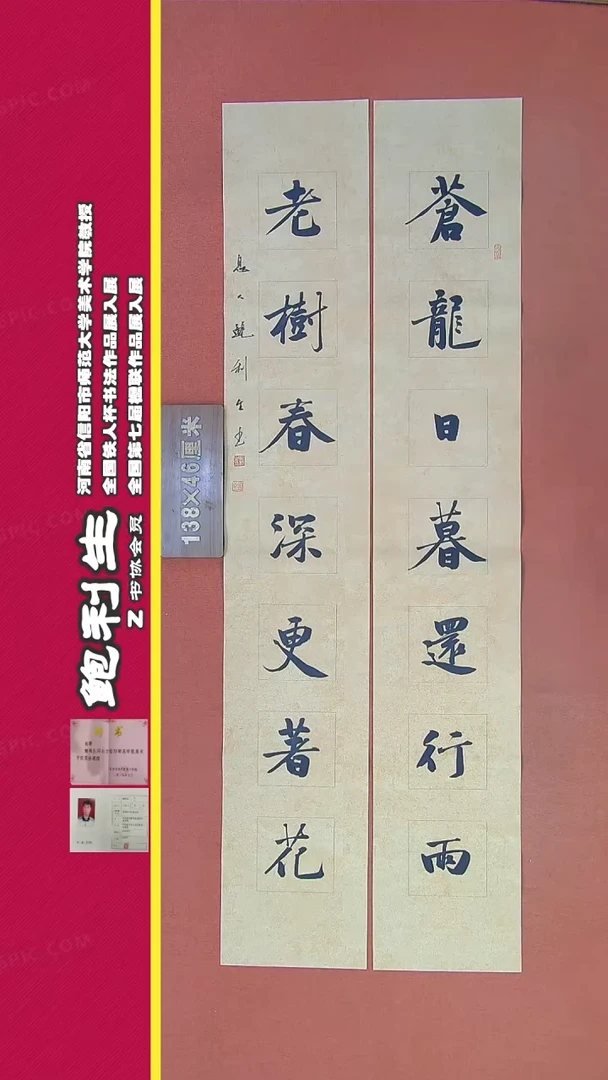 蒼龍日暮還行雨
老樹春深更著花
息人鮑利生書
138×46厘米
河南省信阳市师范大学美术学院教授
全国铁人杯书法作品展入展
全国第七届楹联作品展入展
鲍利生
Z 书协会员